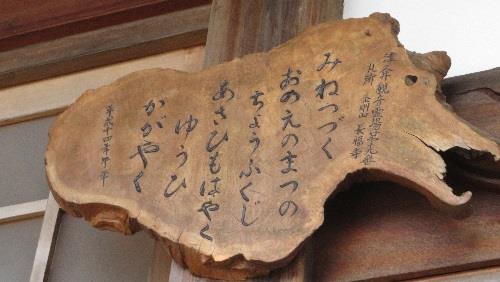 津久井観音霊場第十九番
札所 金剛山 長福寺
みねつづく
おのえのまつの
ちょうふくじ
あさひもはやく
ゆうひ
かがやく
平成十一年甲年